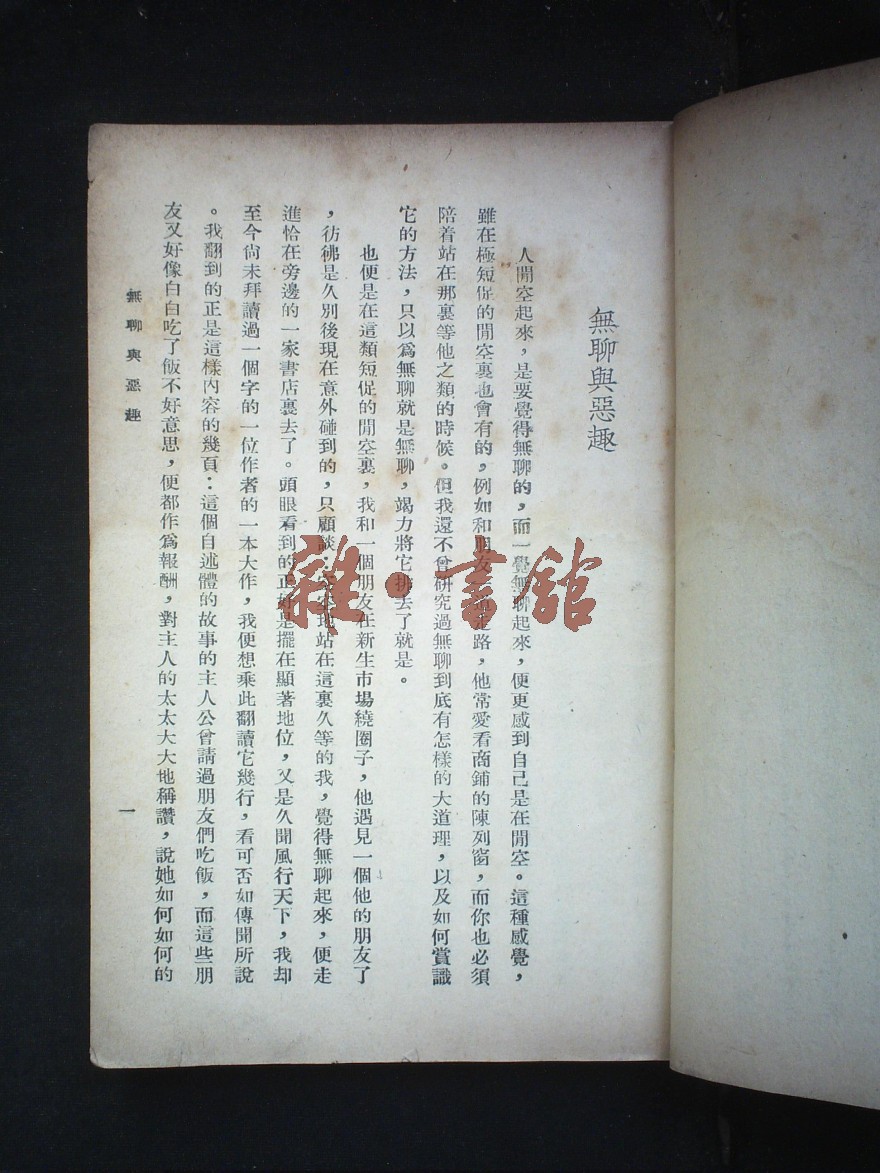 無聊與惡趣
人閒空起來，是要覺得無聊的，而一覺無聊起來，便更感到自己是在閒空。這種感覺，
雖在極短促的閒空裏也會有的，例如和朋友走路，他常愛看商鋪的陳列窗，而你也必須
陪着站在那裏等他之類的時候。但我還不曾研究過無聊到底有怎樣的大道理，以及如何賞識
它的方法，只以爲無聊就是無聊，竭力將它排去了就是。
也便是在這類短促的閒空裏，我和一個朋友在新生市場繞圈子，他遇見一個他的朋友了
，彷彿是久別後現在意外碰到的，只顧談；地站在這裏久等的我，覺得無聊起來，便走
進恰在旁邊的一家書店裏去了。頭眼看到的正好是擺在顯著地位，又是久聞風行天下，我却
至今尙未拜讀過一個字的一位作者的一本大作，我便想乘此翻讀它幾行，看可否如傳聞所說
。我翻到的正是這樣內容的幾頁：這個自述體的故事的主人公曾請過朋友們吃飯，而這些朋
友又好像白白吃了飯不好意思，便都作爲報酬，對主人的太太大大地稱讚，說她如何如何的
無聊與惡趣
一
雜·書館